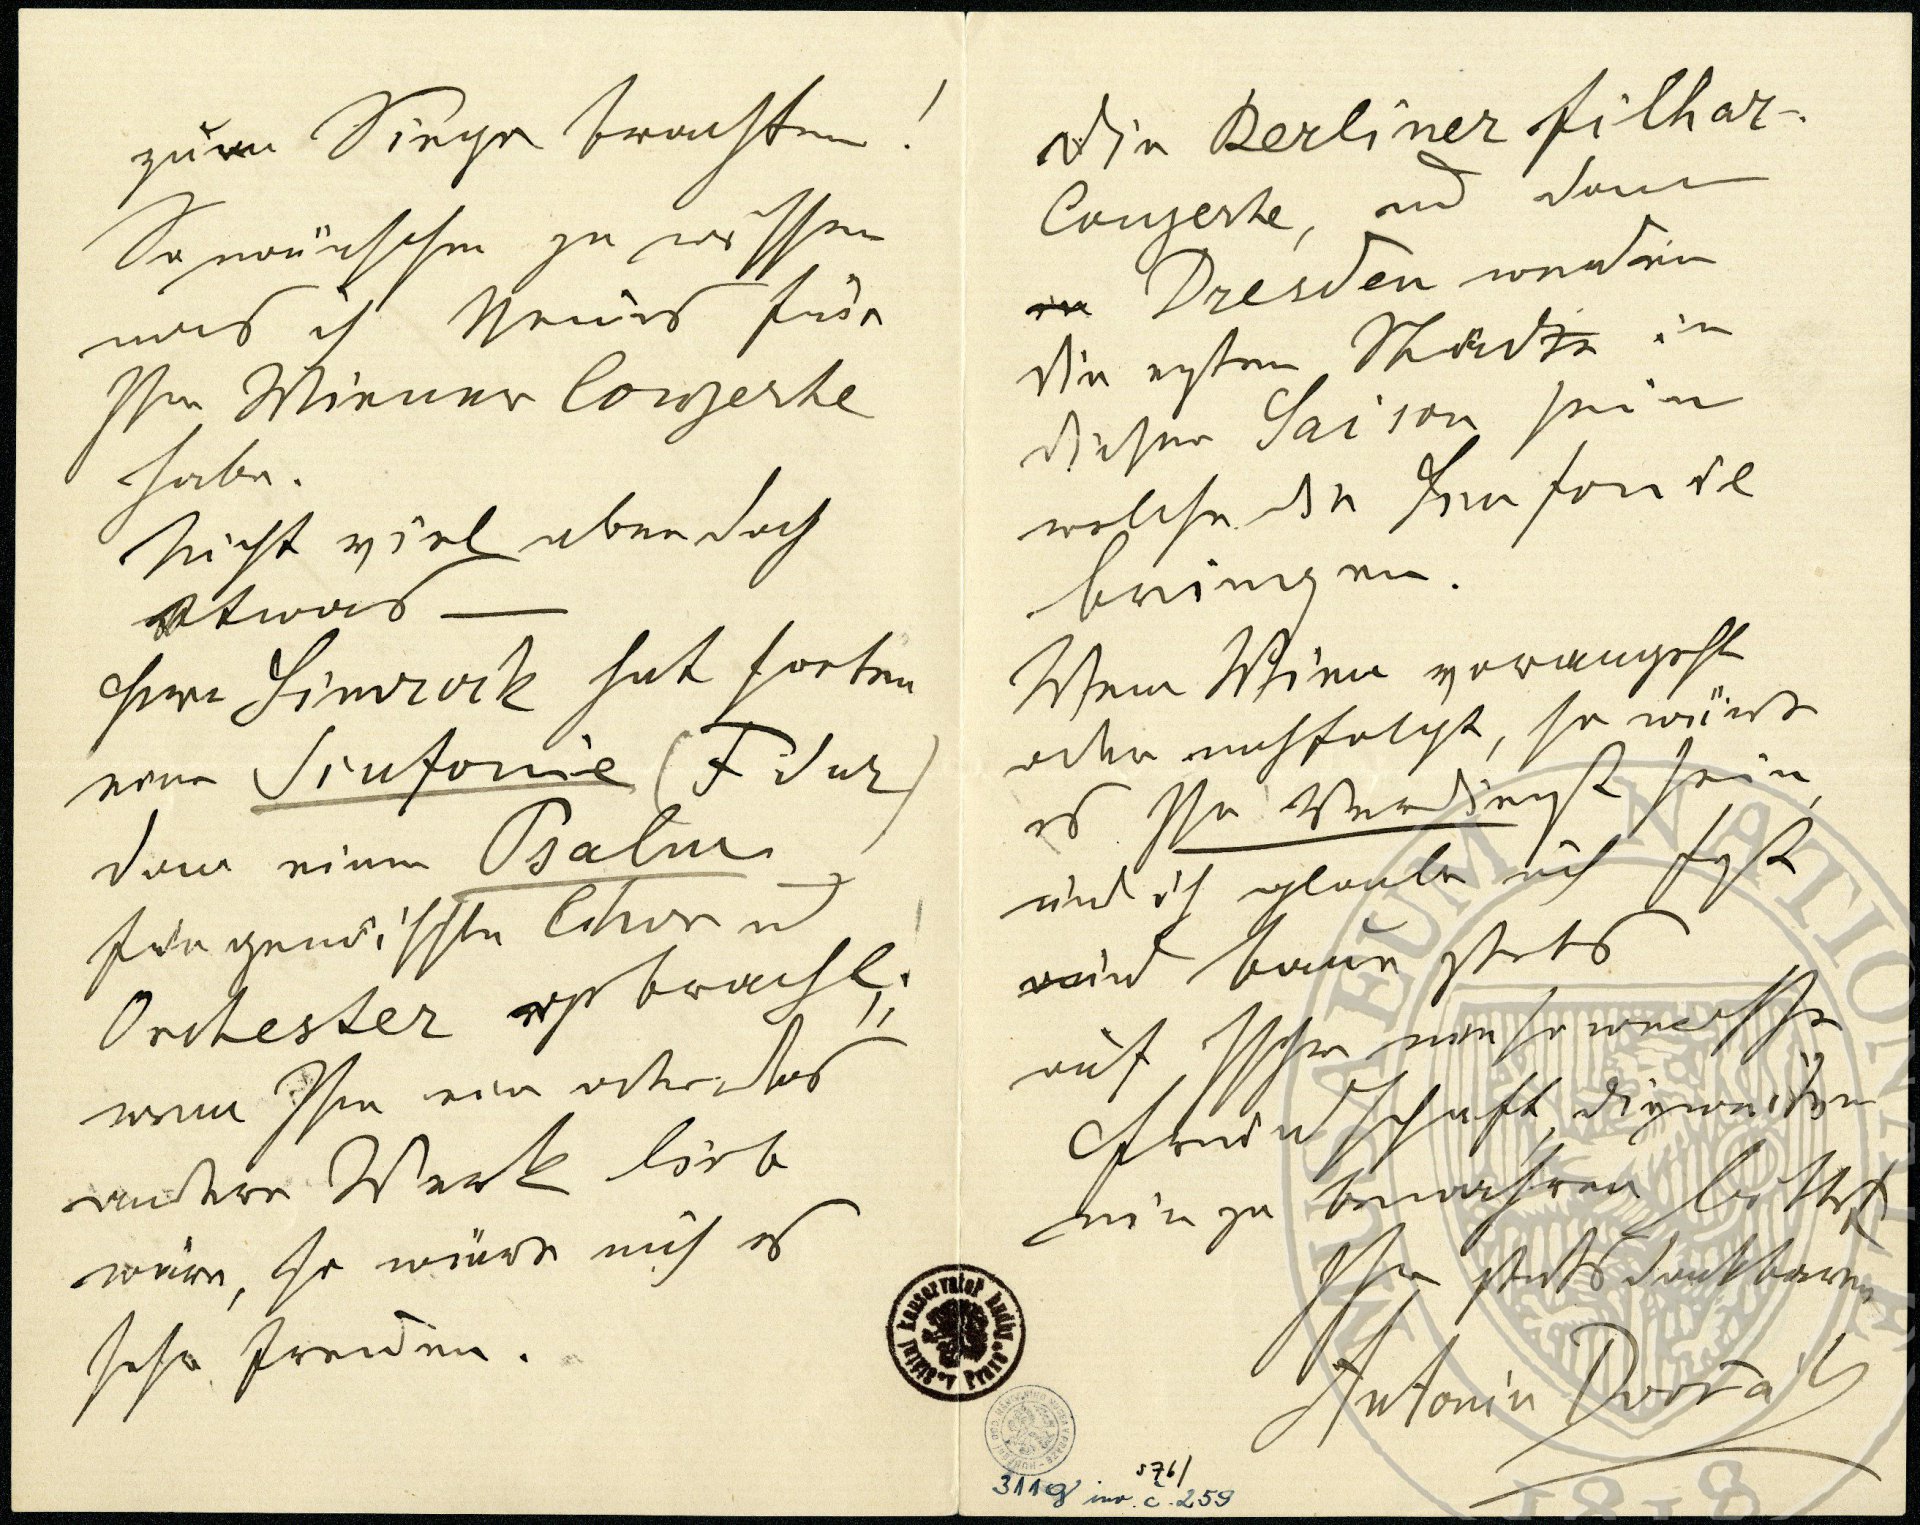 zum Siege brachten!
So wünschen zu wissen
was ich Neues für
Ihre Wiener Conzerte
habe.
Nicht viel aber doch
etwas —
Herr Simrock hat soeben
eine Sinfonie (F dur)
dann einen Psalm
für gemischten Chor und
Orchester gebracht,
wenn Ihn ein oder das
andere Werk lieb
wäre, so würde mich es
sehr freuen.
Die Berliner filhar-
Conzerte, und dann
Dresden werden
die ersten Städte in
dieser Saison sein
welche die Sinfonie
bringen.
Wenn Wien vorangeht
oder nachfolgt, so würde
es Ihr Verdienst sein,
und ich glaube ich fest
und baue stets
auf Ihre mir so werthe
Freundschaft, die weiter
mir zu bewahren bittet
Ihr stets dankbarer
Antonín Dvořák
konservatoř hudby
v Praze
576/
3119 inv. č. 259
MUSAEUM NATIONALE
1818